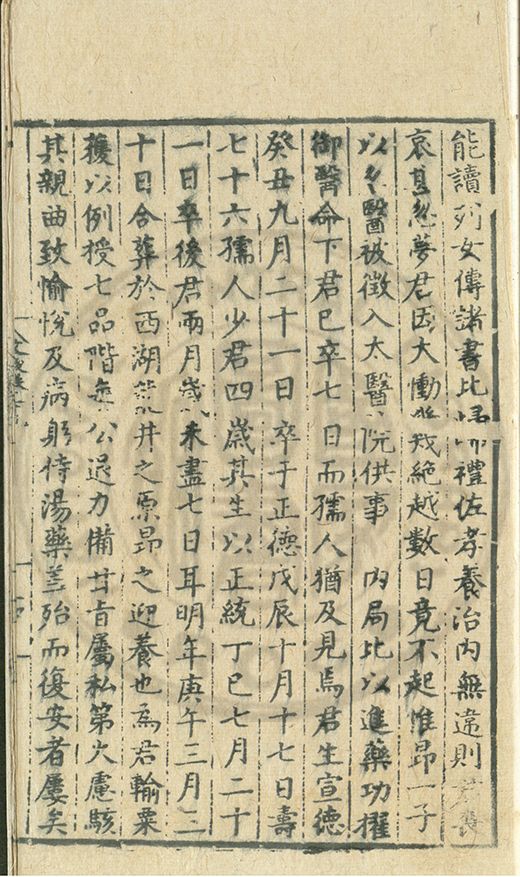 能讀列女傳諸書比歸如禮佐孝養治内無違則
哀甚忽夢君因大慟幾絶越數日竟不起惟昂一子
以名醫被徵入太醫院供事 内局比以進藥功擢
御醫命下君已卒七日而孺人猶及見焉君生宣德
癸丑九月二十一日卒于正德戊辰十月十七日壽
七十六孺人少君四歲其生以正統丁巳七月二十
一日卒後君兩月歲未盡七日耳明年庚午三月三
十日合葬於西湖井之原昂之迎養也爲君輸粟
獲以例授七品階每公退力備甘旨屬私第火慮駭
其親曲致愉悅及病躬侍湯藥蓋殆而復安者屢矣